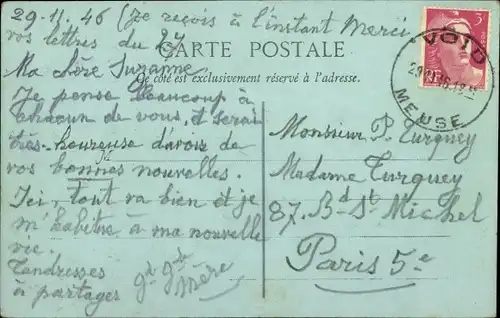 29.11.46 (Je reçois à l'instant Merci
vos lettres du 27
CARTE POSTALE
Ma Chère Suzanne
Ce côté est exclusivement réservé à l'adresse.
Je pense beaucoup à
chacun de vous, et serais
très heureuse d'avoir de
vos bonnes nouvelles.
Ici, tout va bien et je
m'habitue à ma nouvelle
vie.
Tendresses
à partager
Mère
VOID
MEUSE
Monsieur P. Turquey
Madame Turquey
87. Bd St Michel
Paris 5e